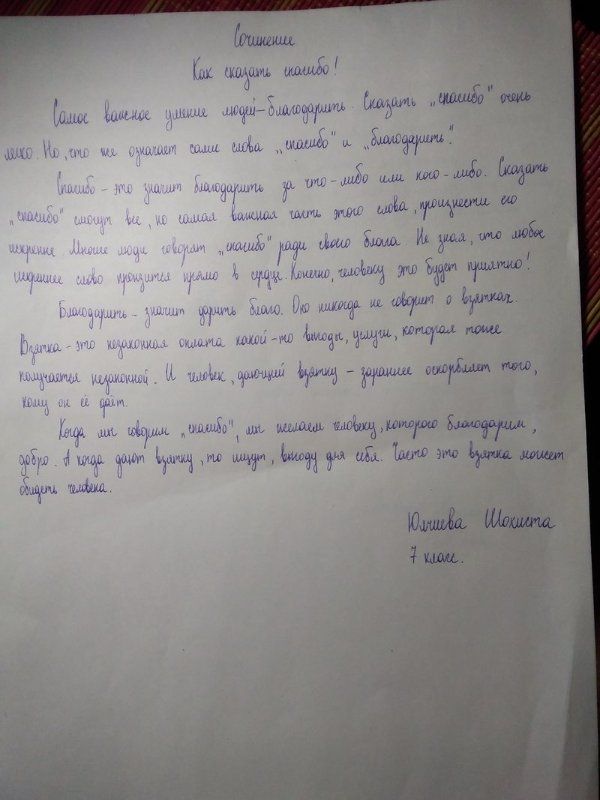 Сочинение
Как сказать спасибо!
Самое важное умение людей – благодарить. Сказать „спасибо" очень
легко. Но, что же означает сами слова „спасибо" и „благодарить".
Спасибо – это значит благодарить за что-либо или кого-либо. Сказать
„спасибо" смогут все, но самая важная часть этого слова, произнести его
искренне. Многие люди говорят „спасибо" ради своего блага. Не зная, что любое
искреннее слово пронзится прямо в сердце. Конечно, человеку это будет приятно!
Благодарить – значит дарить благо. Оно никогда не говорит о взятках.
Взятка – это незаконная оплата какой-то выгоды, услуги, которая тоже
получается незаконной. И человек, дающий взятку – заранее оскорбляет того,
кому он её даёт.
Когда мы говорим „спасибо", мы желаем человеку, которого благодарим,
добро. А когда дают взятку, то ищут, выгоду для себя. Часто это взятка может
обидеть человека.
Юлчиева Шохиста
7 класс.